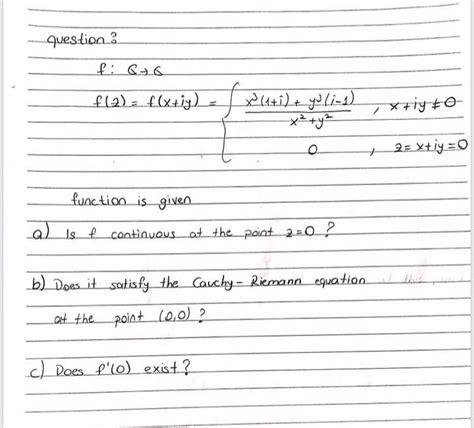 question 3
f: C→C
f(z) = f(x+iy) = { x³(1+i) + y³(i-1) / x²+y² , x+iy ≠ 0
0 , z = x+iy = 0
function is given
a) Is f continuous at the point z=0 ?
b) Does it satisfy the Cauchy-Riemann equation
at the point (0,0) ?
c) Does f'(0) exist ?